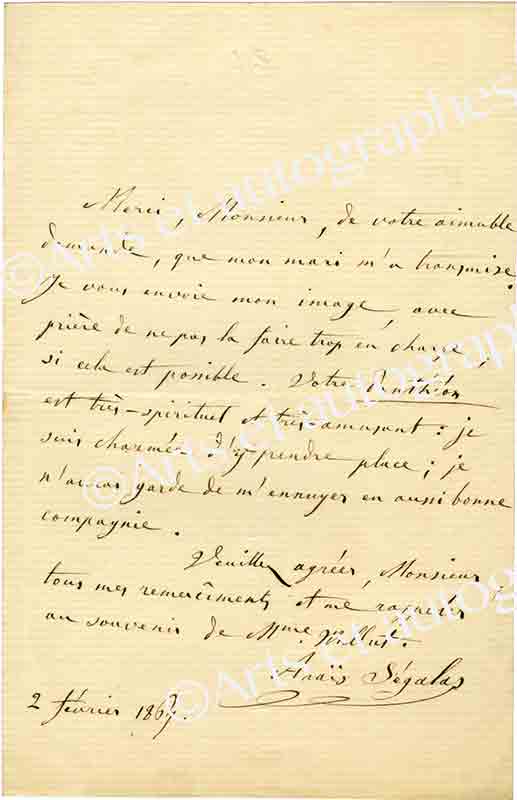 Merci, Monsieur, de votre aimable
demande, que mon mari m'a transmise.
Je vous envoie mon image, avec
prière de ne pas la faire trop en charge,
si cela est possible. Votre Panthéon
est très-spirituel et très-amusant : je
suis charmée d'y prendre place ; je
n'aurai garde de m'ennuyer en aussi bonne
compagnie.
Veuillez agréer, Monsieur
tous mes remercîments et me rappeler
au souvenir de Mme
Anaïs Ségalas
2 février 186
©Arts et autographes
©Arts et autographes
©Arts et autographes